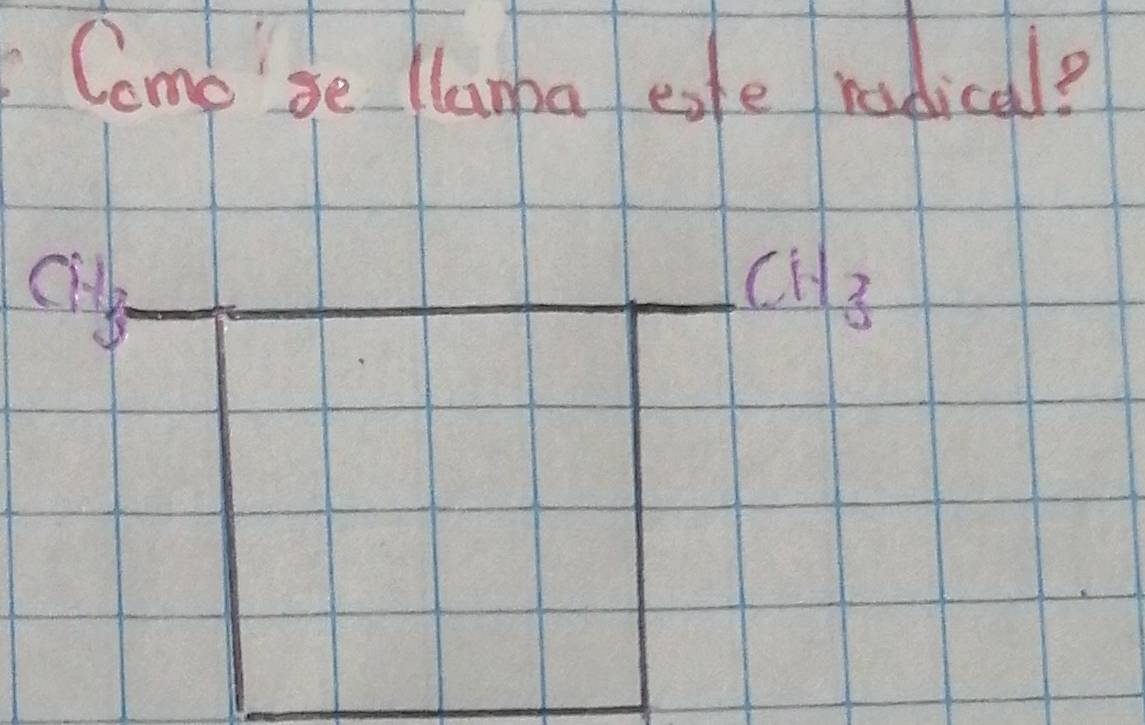 Como se llama este radical?
CH3 CH3